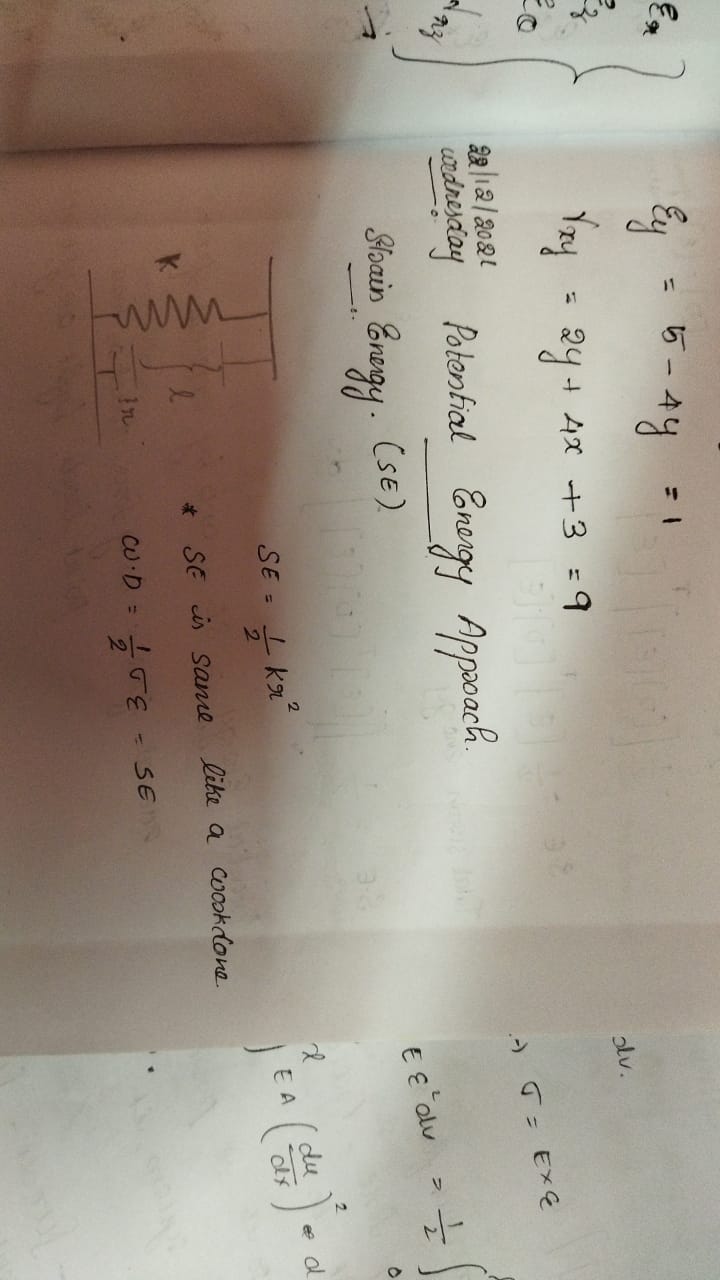 εx
εy = 5 - 4y = 1
γxy = 2y + 4x + 3 = 9
22/12/2021
wednesday
Potential Energy Approach.
Strain Energy. (SE)
K
l
SE = 1/2 kx²
* SE is same like a workdone.
W.D = 1/2 σε = SE
dv.
σ = E×ε
E ε² dv = 1/2 ∫
EA (du/dx)²